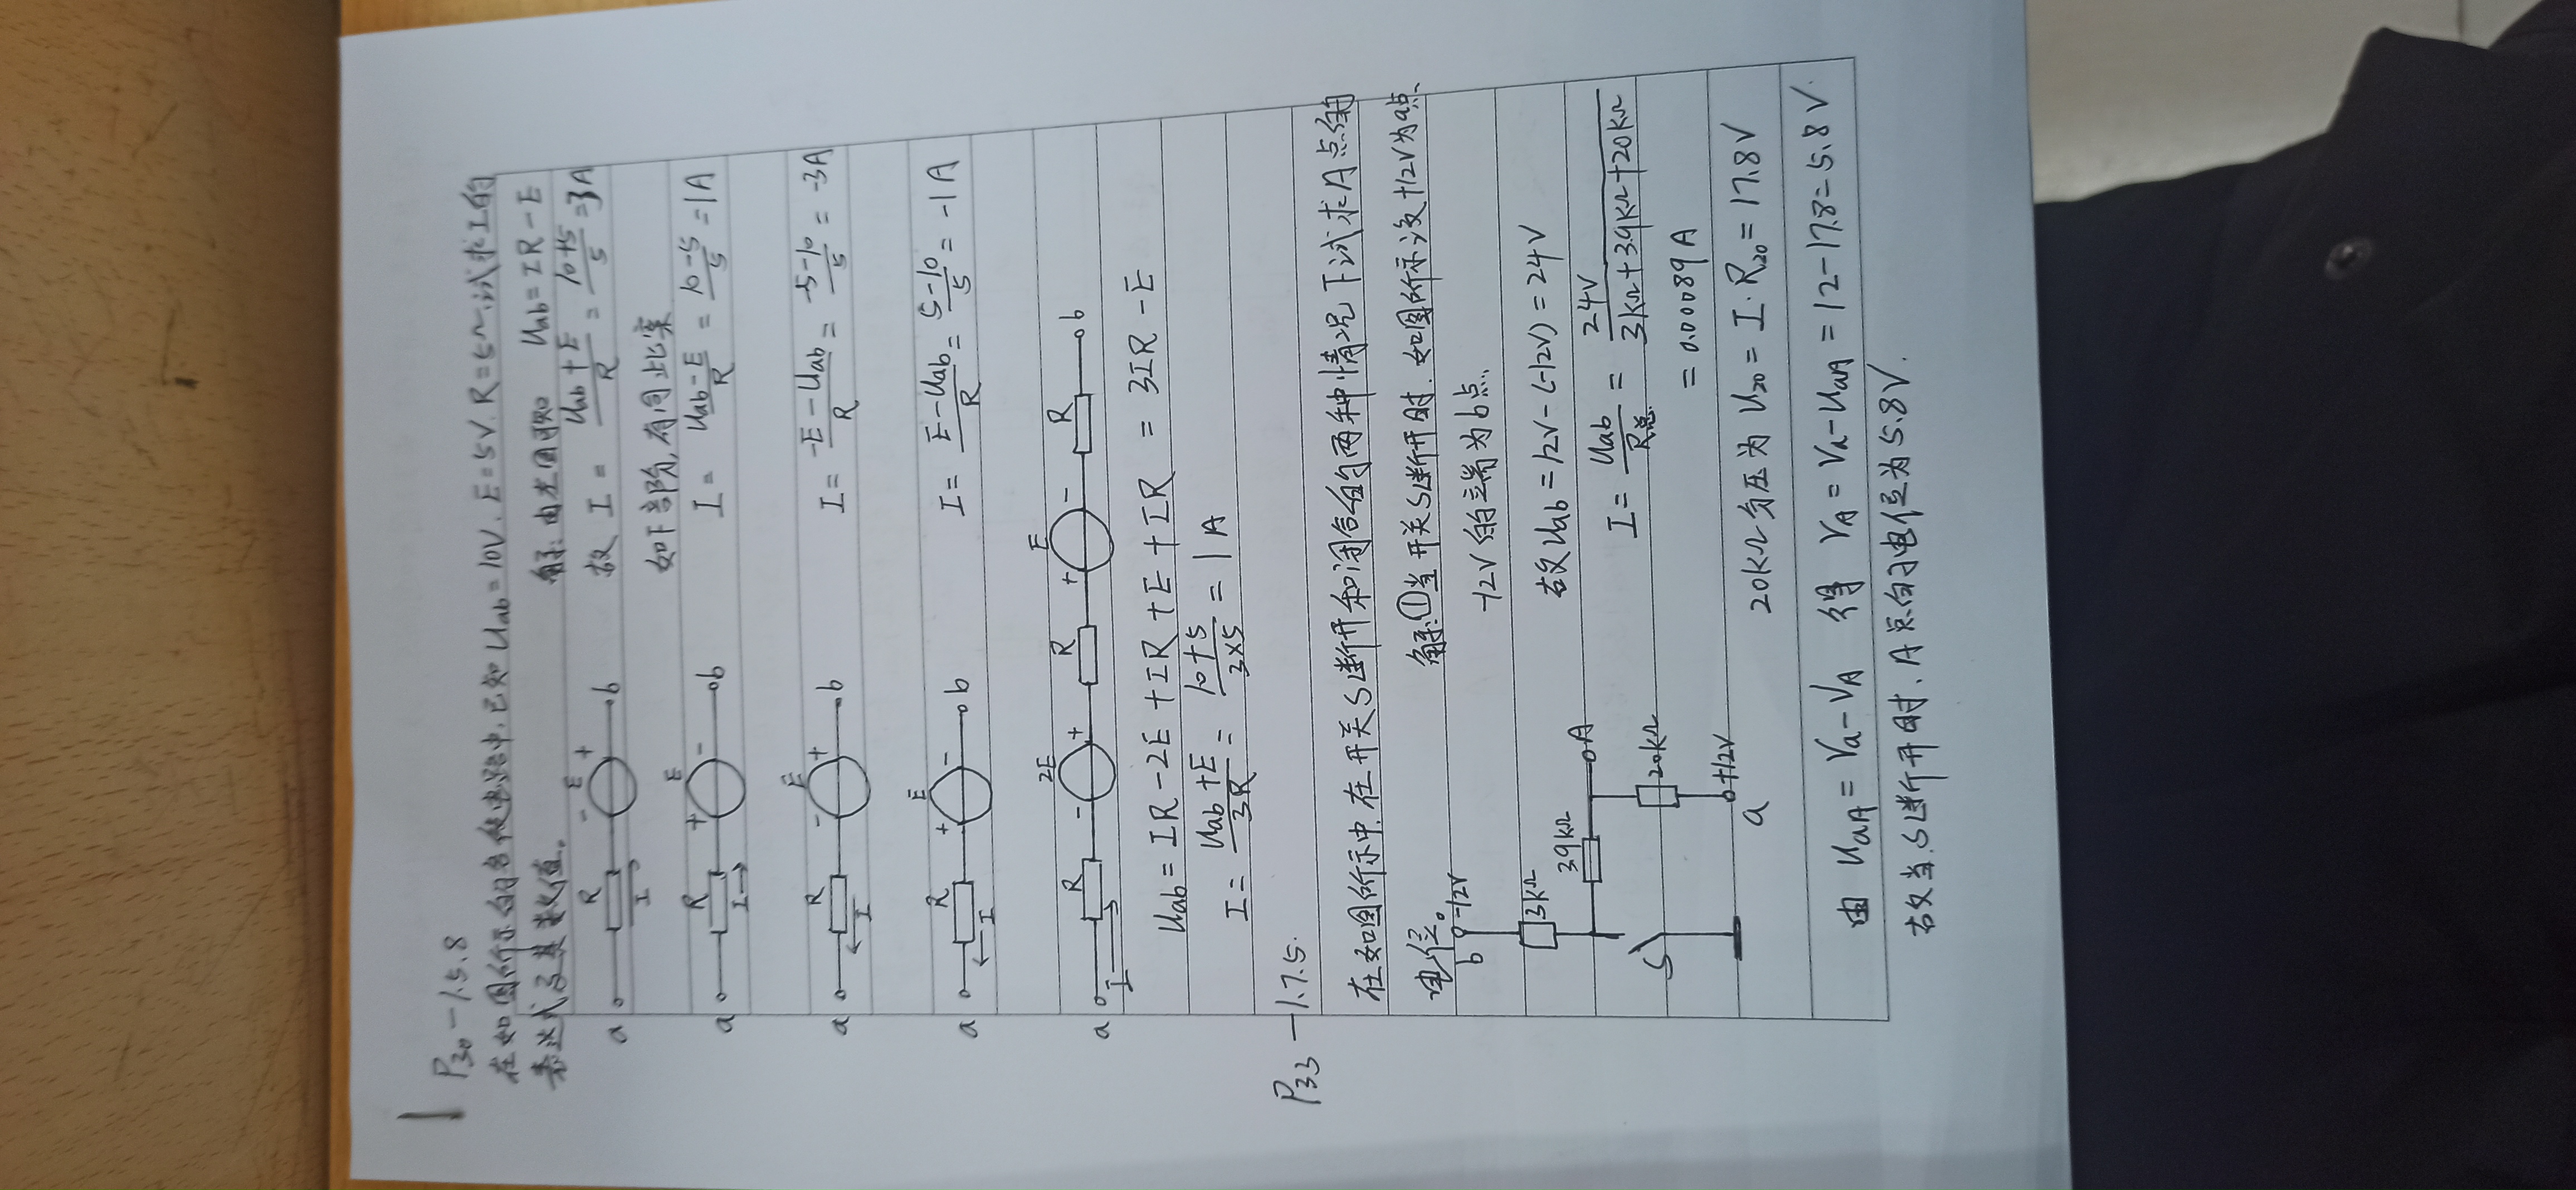 1
P30-1.5.8
在如图所示的各段电路中,已知 Uab=10V. E=5V. R=5Ω,试求I的
表达式及其数值。
解: 由左图可知 Uab=IR-E
a R I - E + b
故 I = (Uab+E)/R = (10+5)/5 =3A
如下各阶,有同此案
a R I + E - b
I = (Uab-E)/R = (10-5)/5 =1A
a R I - E + b
I = (-E-Uab)/R = (-5-10)/5 = -3A
a R I + E - b
I = (E-Uab)/R = (5-10)/5 = -1A
a I R - 2E + R + E - R b
Uab = IR-2E+IR+E+IR = 3IR-E
I = (Uab+E)/3R = (10+5)/(3×5) = 1A
P33-1.7.5.
在如图所示中,在开关S断开和闭合的两种情况下试求A点的
电位。
解:①当开关S断开时,如图所示设+12V为a点
b -12V
-12V的端为b点,
3KΩ
故Uab=12V-(-12V)=24V
3.9KΩ A
I = Uab/R总 = 24V/(3KΩ+3.9KΩ+20KΩ)
S 20KΩ
= 0.00089A
+12V
a
20KΩ分压为 U20 = I·R20 = 17.8V
由 UaA = Va-VA 得 VA = Va-UaA = 12-17.8=5.8V.
故当S断开时,A点的电位为5.8V.